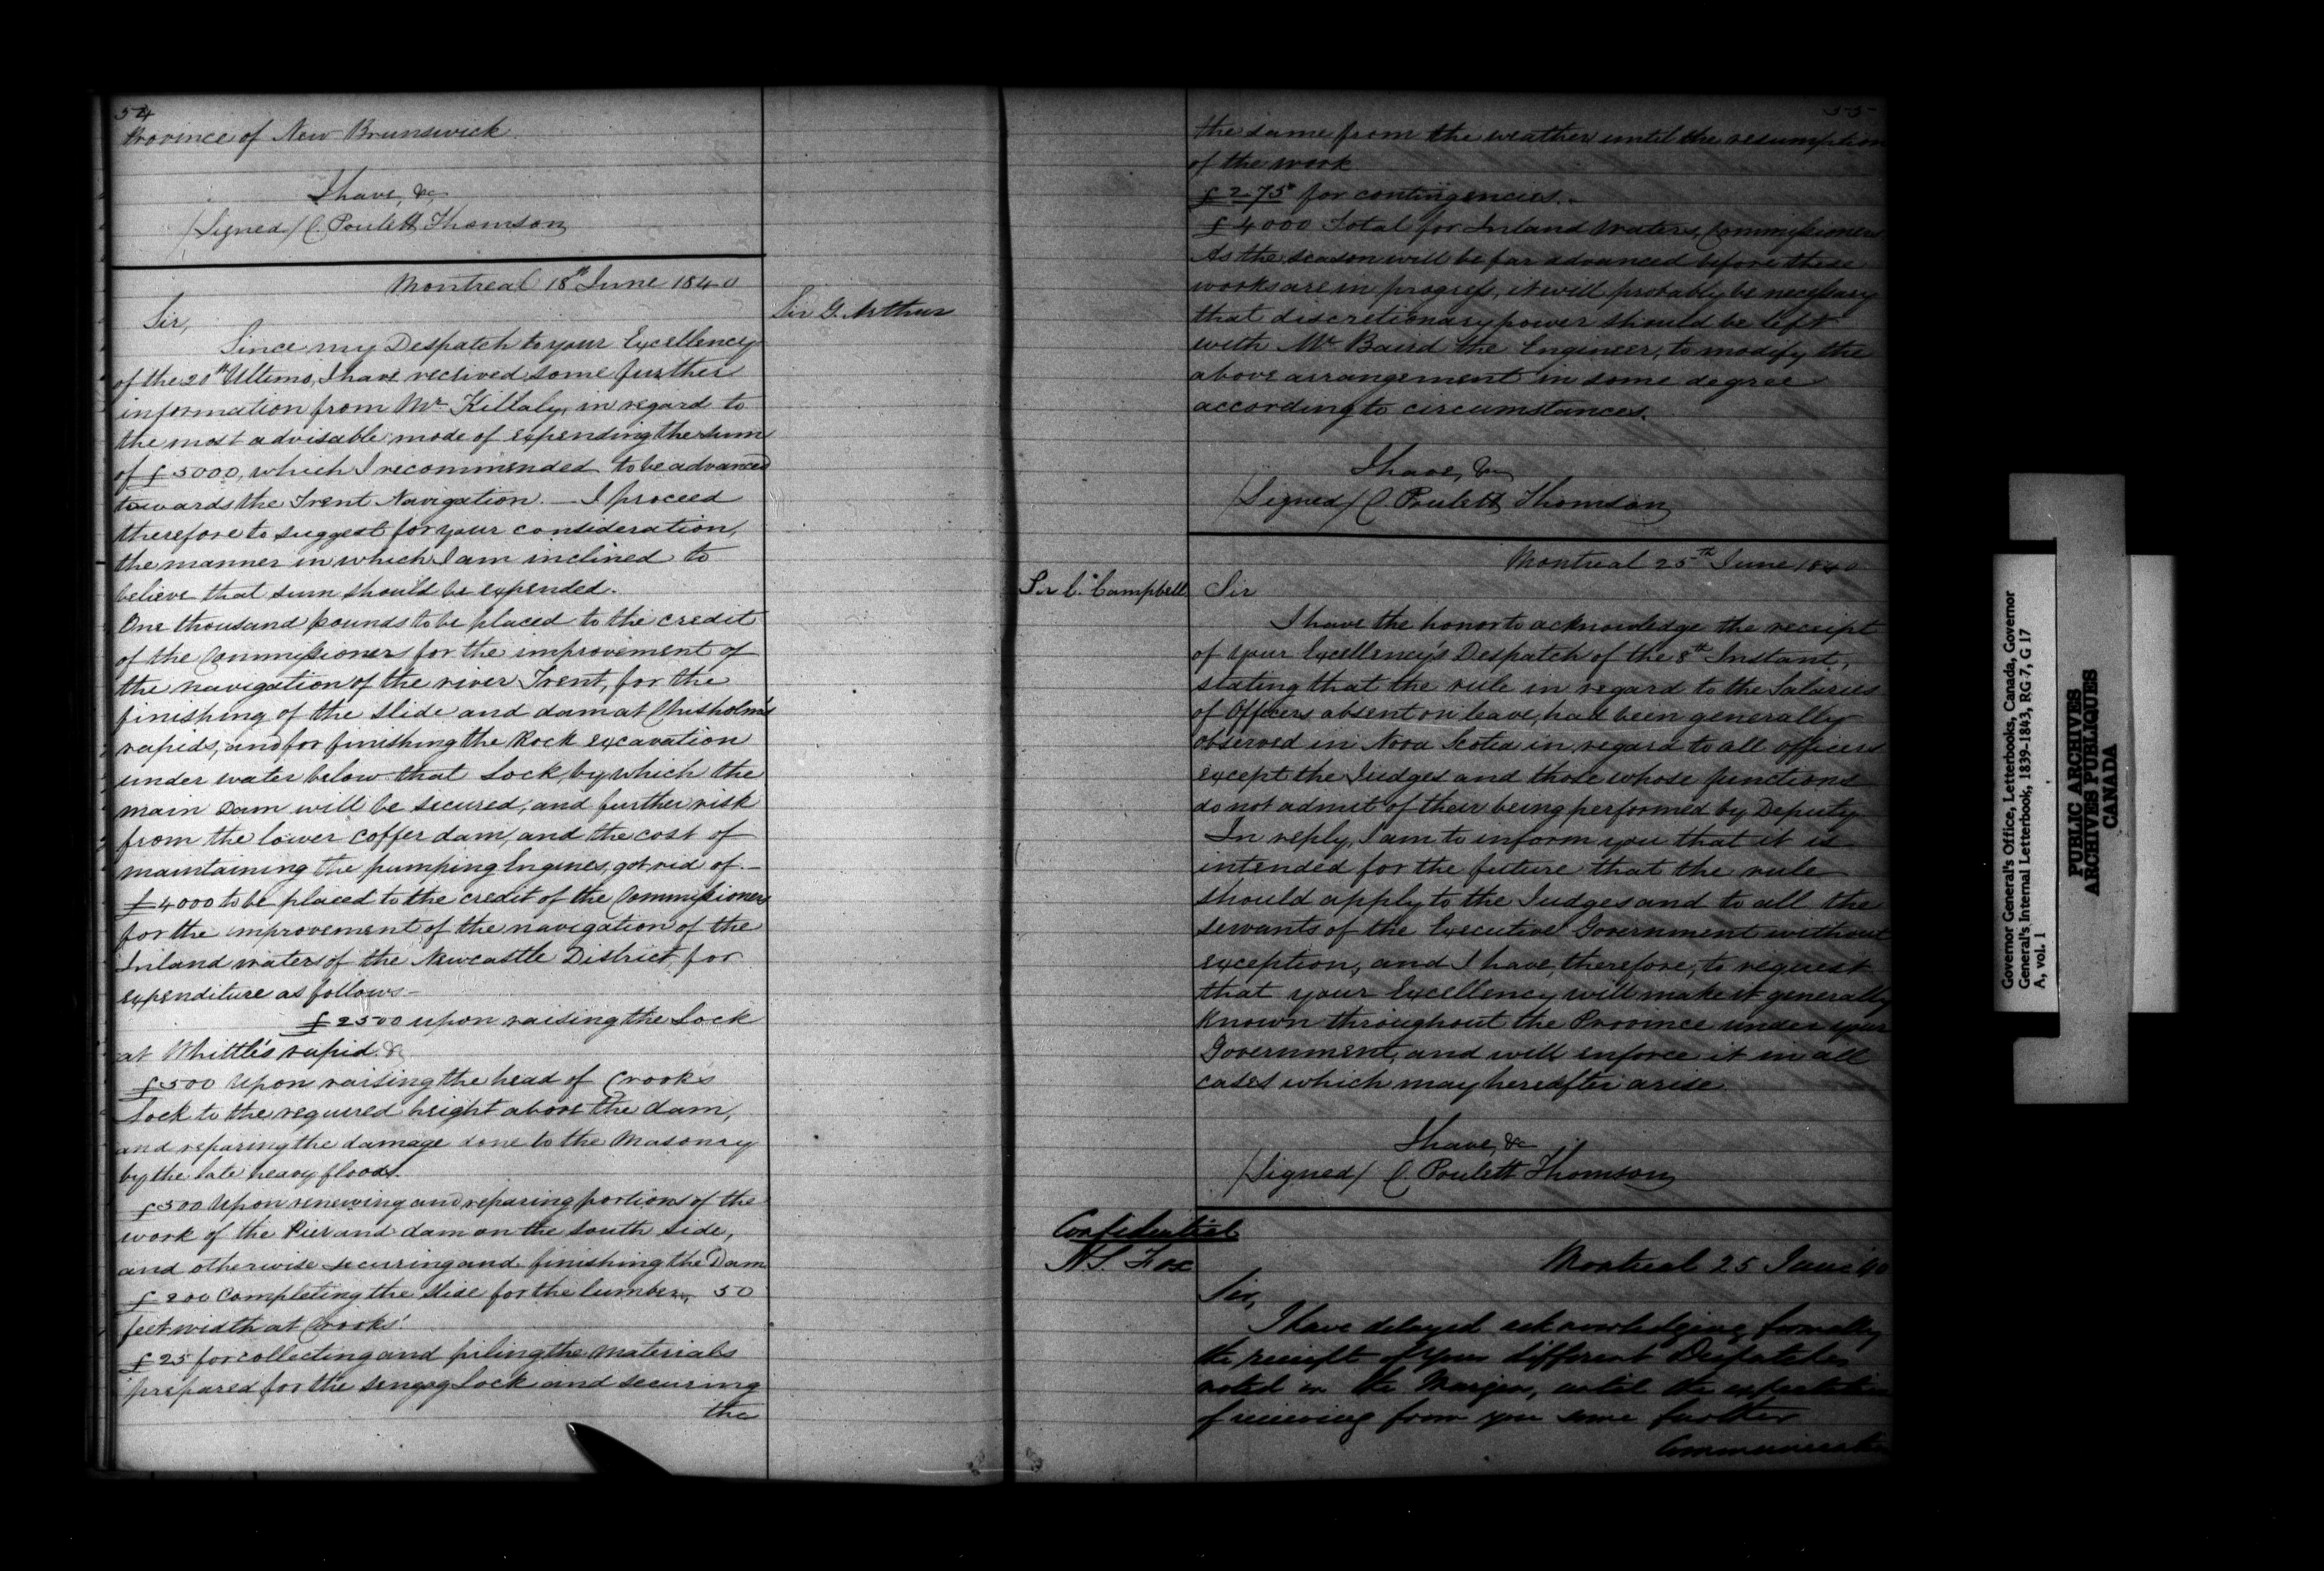 54
Province of New Brunswick.
I have, &c,
/Signed/ C. Poulett Thomson
Montreal 18th June 1840
Sir G. Arthur
Sir,
Since my Despatch to your Excellency
of the 20th Ultimo, I have received some further
information from Mr Killaly, in regard to
the most advisable mode of expending the sum
of £5000, which I recommended to be advanced
towards the Trent Navigation. — I proceed
therefore to suggest for your consideration,
the manner in which I am inclined to
believe that sum should be expended.
One thousand pounds to be placed to the credit
of the Commissioners for the improvement of
the navigation of the river Trent, for the
finishing of the slide and dam at Chisholm's
rapids, and for finishing the Rock excavation
under water below that Lock, by which the
main Dam will be secured, and further risk
from the lower coffer dam, and the cost of
maintaining the pumping Engines, got rid of. —
£4000 to be placed to the credit of the Commissioners
for the improvement of the navigation of the
Inland waters of the Newcastle District, for
expenditure as follows —
£2500 upon raising the Lock
at Whittle's rapid. &c
£500 Upon raising the head of Crook's
Lock to the required height above the dam,
and reparing the damage done to the Masonry
by the late heavy floods.
£500 Upon renewing and reparing portions of the
work of the Pier and dam on the South side,
and otherwise securing and finishing the Dam
£200 Completing the slide for the lumber, 50
feet width at Crooks'
£25 for collecting and piling the materials
prepared for the Lock and securing
the
55
the same from the weather until the resumption
of the work
£275 for contingencies. —
£4000 Total for Inland Waters, Commissioners
As the season will be far advanced before these
works are in progress, it will probably be necessary
that discretionary power should be left
with Mr Baird the Engineer, to modify the
above arrangement in some degree
according to circumstances.
I have, &c
/Signed/ C. Poulett Thomson
Montreal 25th June 1840
Sir C. Campbell
Sir
I have the honor to acknowledge the receipt
of your Excellency's Despatch of the 8th Instant,
stating that the rule in regard to the Salaries
of Officers absent on leave, had been generally
observed in Nova Scotia in regard to all officers
except the Judges and those whose functions
do not admit of their being performed by Deputy
In reply, I am to inform you that it is
intended for the future that the rule
should apply to the Judges and to all the
servants of the Executive Government without
exception, and I have, therefore, to request
that your Excellency will make it generally
known throughout the Province under your
Government, and will enforce it in all
cases which may hereafter arise.
I have, &c
/Signed/ C. Poulett Thomson
Confidential
H. S. Fox
Montreal 25 June 40
Sir,
I have delayed acknowledging formally
the receipt of your different Despatches
noted in the Margin, until the expectation
of receiving from you some further
Communication
Governor General's Office, Letterbooks, Canada, Governor
General's Internal Letterbook, 1839-1843, RG 7, G 17
A, vol. 1
PUBLIC ARCHIVES
ARCHIVES PUBLIQUES
CANADA